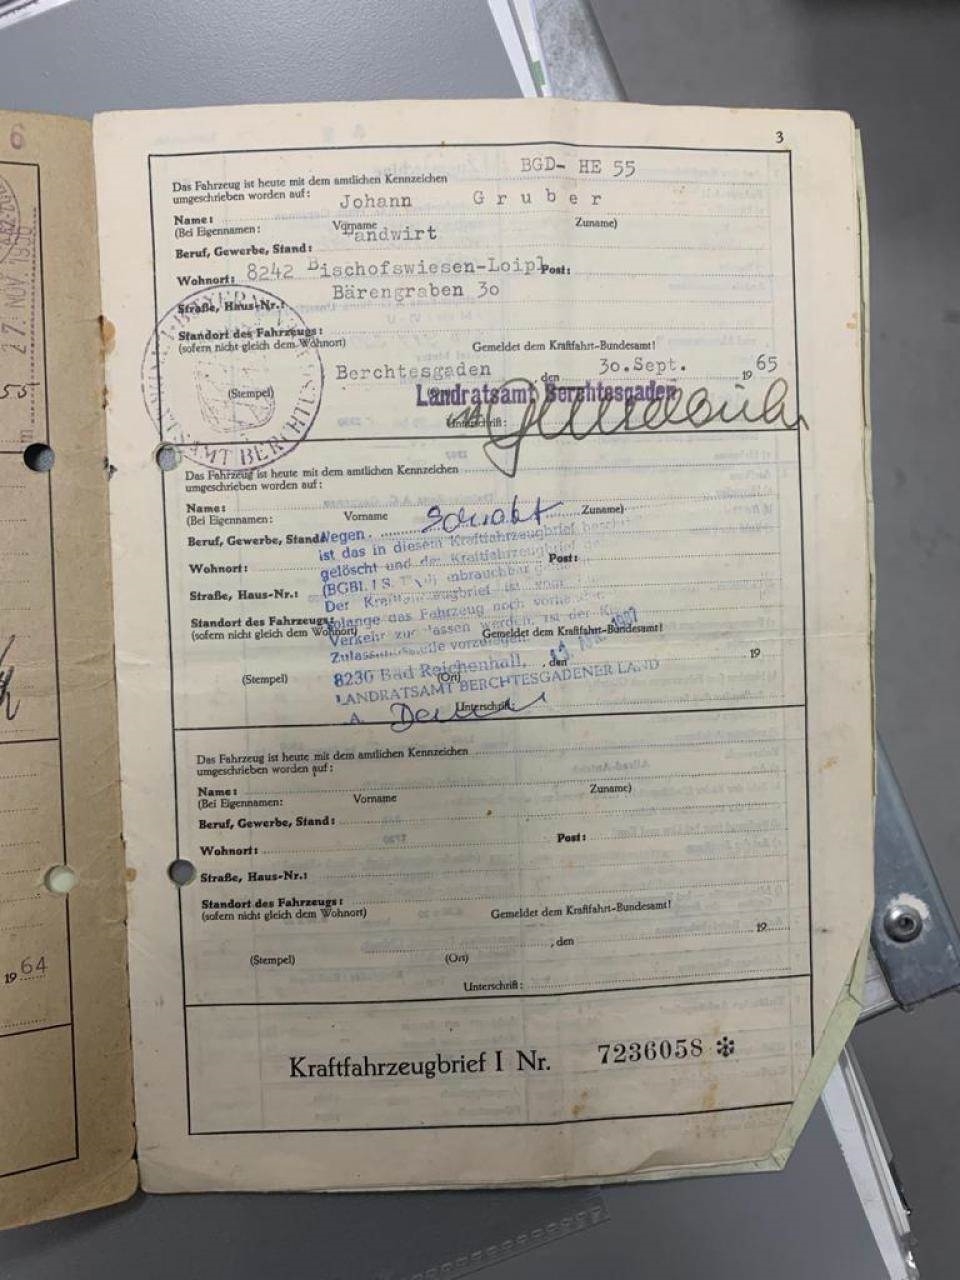 6
3
Das Fahrzeug ist heute mit dem amtlichen Kennzeichen BGD- HE 55
umgeschrieben worden auf:
Name: Johann Gruber
(Bei Eigennamen: Vorname Zuname)
Beruf, Gewerbe, Stand: Landwirt
Wohnort: 8242 Bischofswiesen-Loipl Post:
Straße, Haus-Nr.: Bärengraben 30
Standort des Fahrzeugs:
(sofern nicht gleich dem Wohnort) Gemeldet dem Kraftfahrt-Bundesamt!
Berchtesgaden, den 30.Sept. 1965
(Stempel) Landratsamt Berchtesgaden
Unterschrift:
Das Fahrzeug ist heute mit dem amtlichen Kennzeichen
umgeschrieben worden auf:
Name:
(Bei Eigennamen: Vorname Zuname)
Beruf, Gewerbe, Stand:
Wegen
ist das in diesem Kraftfahrzeugbrief
Wohnort: Post:
gelöscht und der Kraftfahrzeugbrief
(BGBl. I S. unbrauchbar
Straße, Haus-Nr.:
Der Kraftfahrzeugbrief ist
Standort des Fahrzeugs:
Solange das Fahrzeug noch
(sofern nicht gleich dem Wohnort) Gemeldet dem Kraftfahrt-Bundesamt!
Verkehr werden, ist der
vorzulegen
8230 Bad Reichenhall, den 19
(Stempel) (Ort)
LANDRATSAMT BERCHTESGADENER LAND
Unterschrift:
Das Fahrzeug ist heute mit dem amtlichen Kennzeichen
umgeschrieben worden auf:
Name:
(Bei Eigennamen: Vorname Zuname)
Beruf, Gewerbe, Stand:
Wohnort: Post:
Straße, Haus-Nr.:
Standort des Fahrzeugs:
(sofern nicht gleich dem Wohnort) Gemeldet dem Kraftfahrt-Bundesamt!
, den 19
(Stempel) (Ort)
Unterschrift:
1964
Kraftfahrzeugbrief I Nr. 7236058 ✻